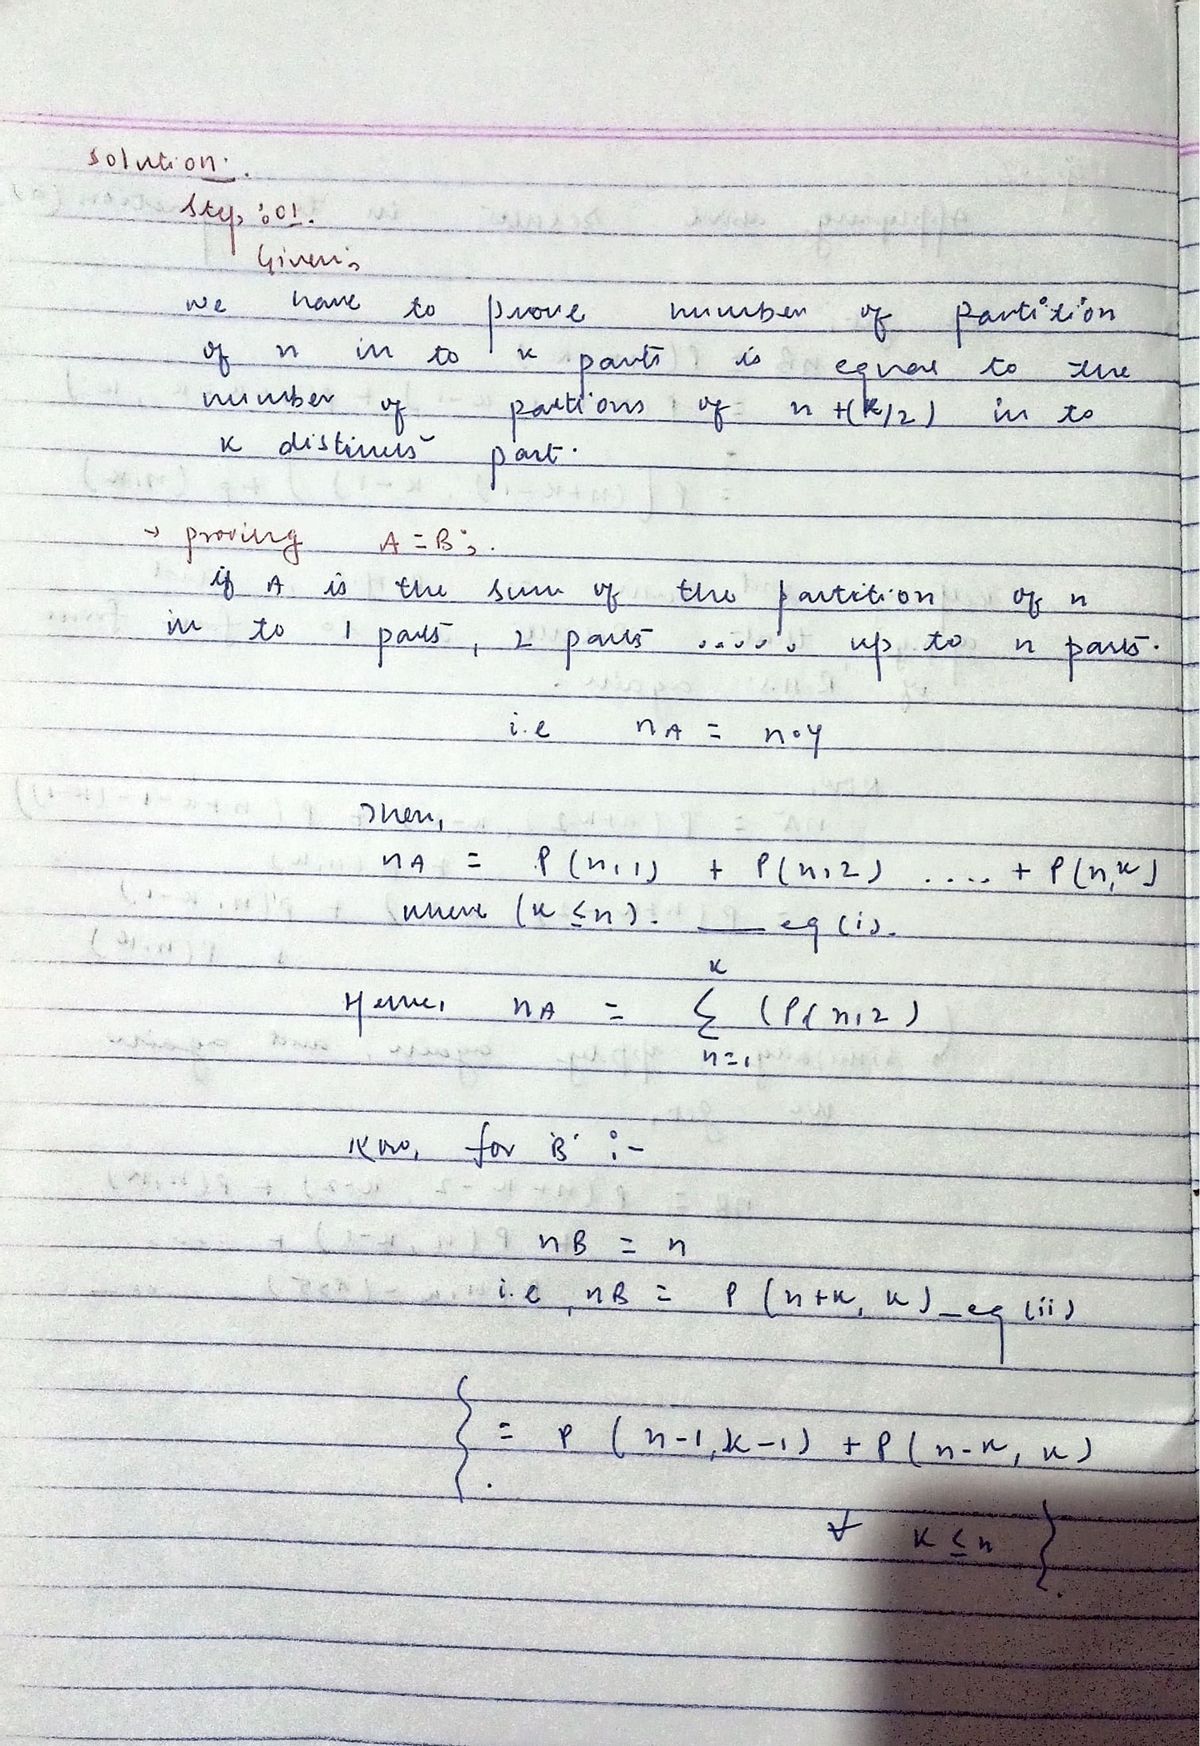 solution:.
Step :01.
Given:
we have to prove number of partition
of n in to k parts is equal to the
number of partions of n+(k/2) in to
k distinct part.
→ proving A = B:.
if A is the sum of the partition of n
in to 1 parts, 2 parts ..... up to n parts.
i.e nA = n.y
Then,
nA = P(n,1) + P(n,2) .... + P(n,k)
where (k ≤ n). __ eq (i).
k
Hence, nA = ∑ (P(n,2)
n=1
for 'B' :-
nB = n
i.e, nB = P (n+k, k) _ eq (ii)
{ = P (n-1, k-1) + P(n-k, k)
∀ k ≤ n }.